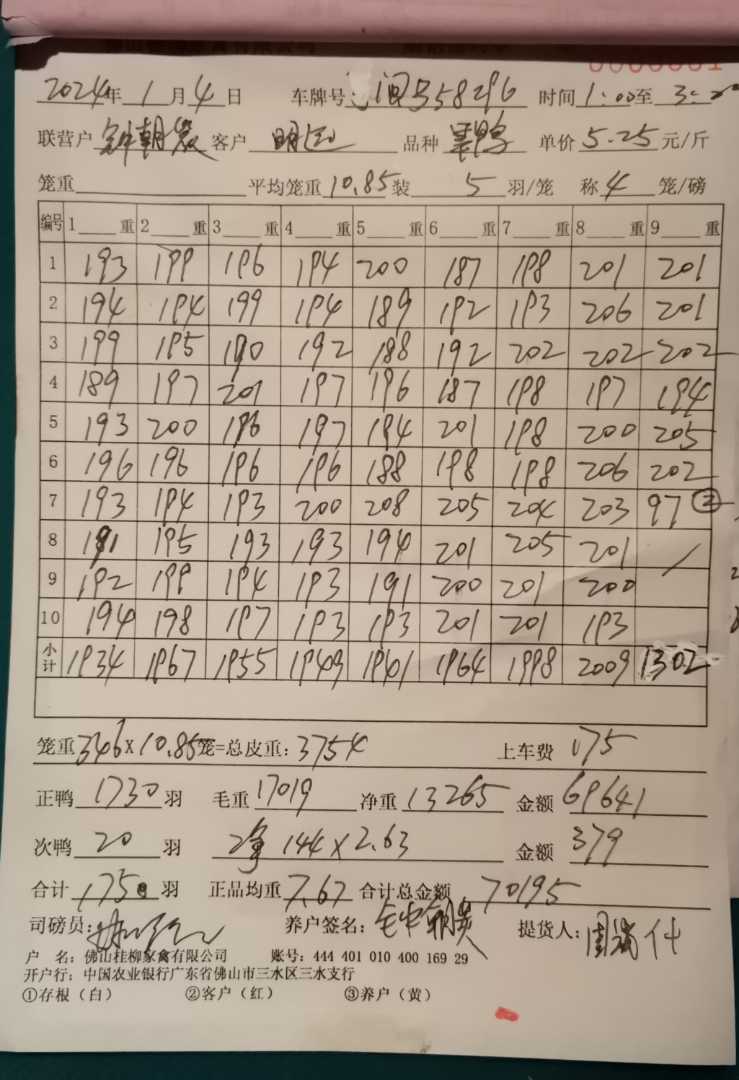 2024年 1月4日 车牌号: 闽 58296 时间1:00至3:20
联营户 钟朝贵 客户 明 品种 鸭 单价5.25元/斤
笼重 平均笼重10.85装 5 羽/笼 称4笼/磅
编号 1 重 2 重 3 重 4 重 5 重 6 重 7 重 8 重 9 重
1 193 199 196 194 200 187 198 201 201
2 194 194 199 194 189 192 193 206 201
3 199 195 190 192 188 192 202 202 202
4 189 197 201 197 196 187 198 197 194
5 193 200 196 197 194 201 198 200 205
6 196 196 196 196 188 198 198 206 202
7 193 194 193 200 208 205 204 203 97 ②
8 191 195 193 193 194 201 205 201 /
9 192 199 194 193 191 200 201 200
10 194 198 197 193 193 201 201 193
小计 1934 1967 1955 1949 1941 1964 1998 2009 1302
笼重346×10.85笼=总皮重:3754 上车费 175
正鸭 1730 羽 毛重17019 净重13265 金额69641
次鸭 20 羽 净 144×2.63 金额 379
合计 1750 羽 正品均重7.67 合计总金额 70195
司磅员: 养户签名: 钟朝贵 提货人:
户 名:佛山桂柳家禽有限公司 账号:444 401 010 400 169 29
开户行:中国农业银行广东省佛山市三水区三水支行
①存根(白) ②客户(红) ③养户(黄)